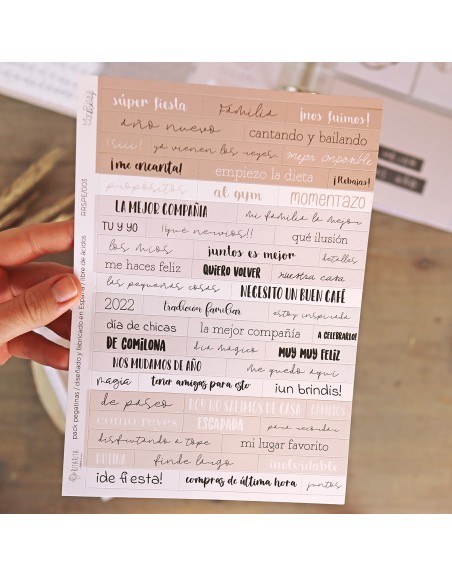 súper fiesta familia ¡nos fuimos!
año nuevo cantando y bailando
¡sííí! ya vienen los reyes mejor imposible
¡me encanta! empiezo la dieta ¡Rebajas!
propósitos al gym MOMENTAZO
LA MEJOR COMPAÑIA mi familia la mejor
TU Y YO ¡¡qué nervios!! qué ilusión
los míos juntos es mejor detalles
me haces feliz QUIERO VOLVER nuestra casa
las pequeñas cosas NECESITO UN BUEN CAFÉ
2022 tradición familiar estoy inspirada
día de chicas la mejor compañía A CELEBRARLO!
DE COMILONA día mágico MUY MUY FELIZ
NOS MUDAMOS DE AÑO me quedo aquí
magia tener amigas para esto ¡un brindis!
de paseo HOY NO SALIMOS DE CASA
como reyes ESCAPADA para recordar
disfrutando a tope mi lugar favorito
RUTINA finde largo inolvidable
¡de fiesta! compras de última hora juntos
pack pegatinas / diseñado y fabricado en España / libre de ácidos